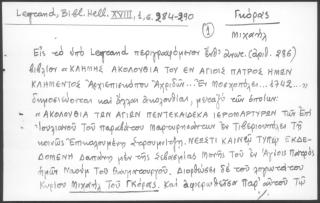 Legrand, Bibl. Hell. XVIII, 1, σ. 284-290
Γκόρας
(1)
Μιχαήλ
Εἰς τὸ ὑπὸ Legrand περιγραφόμενον ἐνθ' ἀνωτ. (ἀριθ. 296)
βιβλίον "ΚΛΗΜΗΣ ΑΚΟΛΟΥΘΙΑ ΤΟΥ ΕΝ ΑΓΙΟΙΣ ΠΑΤΡΟΣ ΗΜΩΝ
ΚΛΗΜΕΝΤΟΣ Ἀρχιεπισκόπου Ἀχριδῶν... Ἐν Μοσχοπόλει... 1742..."
δημοσιεύονται καὶ ἄλλαι ἀκολουθίαι, μεταξὺ τῶν ὁποίων:
"ΑΚΟΛΟΥΘΙΑ ΤΩΝ ΑΓΙΩΝ ΠΕΝΤΕΚΑΙΔΕΚΑ ΙΕΡΟΜΑΡΤΥΡΩΝ ΤΩΝ Ἐπὶ
Ἰουλιανοῦ τοῦ παραβάτου μαρτυρησάντων ἐν Τιβεριουπόλει τῇ
κοινῶς Ἐπονομαζομένῃ Στρουμνίτζῃ. ΝΕΩΣΤΙ ΚΑΙΝΩΣ ΤΥΠΩ ΕΚΔΕ-
ΔΟΜΕΝΗ Δαπάνῃ μὲν τῆς Σεβασμίας Μονῆς τοῦ ἐν Ἁγίοις Πατρὸς
ἡμῶν Ναοὺμ τοῦ Θαυματουργοῦ. Διορθώσει δὲ τοῦ
Κυρίου Μιχαὴλ τοῦ Γκόρας. Καὶ ἀφιερωθεῖσα Παρ' αὐτοῦ τῷ